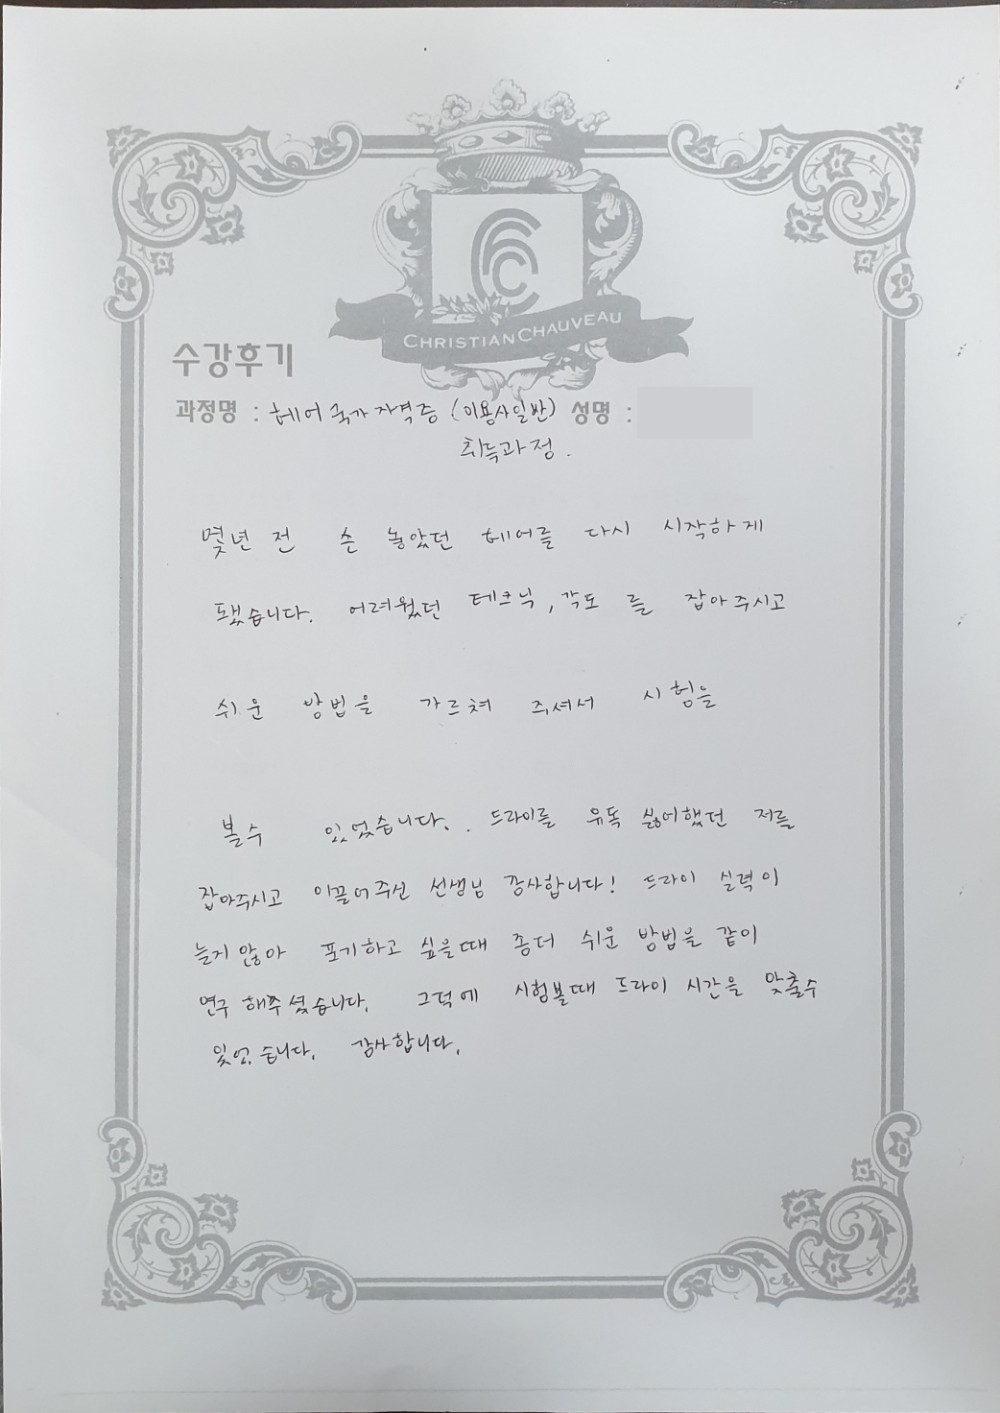 CHRISTIAN CHAUVEAU
수강후기
과정명 : 헤어 국가 자격증 (미용사일반) 성명 :
취득과정.
몇년 전 손 놓았던 헤어를 다시 시작하게
됐습니다. 어려웠던 테크닉, 각도 를 잡아주시고
쉬운 방법을 가르쳐 주셔서 시험을
볼수 있었습니다. . 드라이를 유독 싫어했던 저를
잡아주시고 이끌어주신 선생님 감사합니다! 드라이 실력이
늘지 않아 포기하고 싶을때 좀더 쉬운 방법을 같이
연구 해주셨습니다. 그덕에 시험볼때 드라이 시간을 맞출수
있었습니다. 감사합니다.